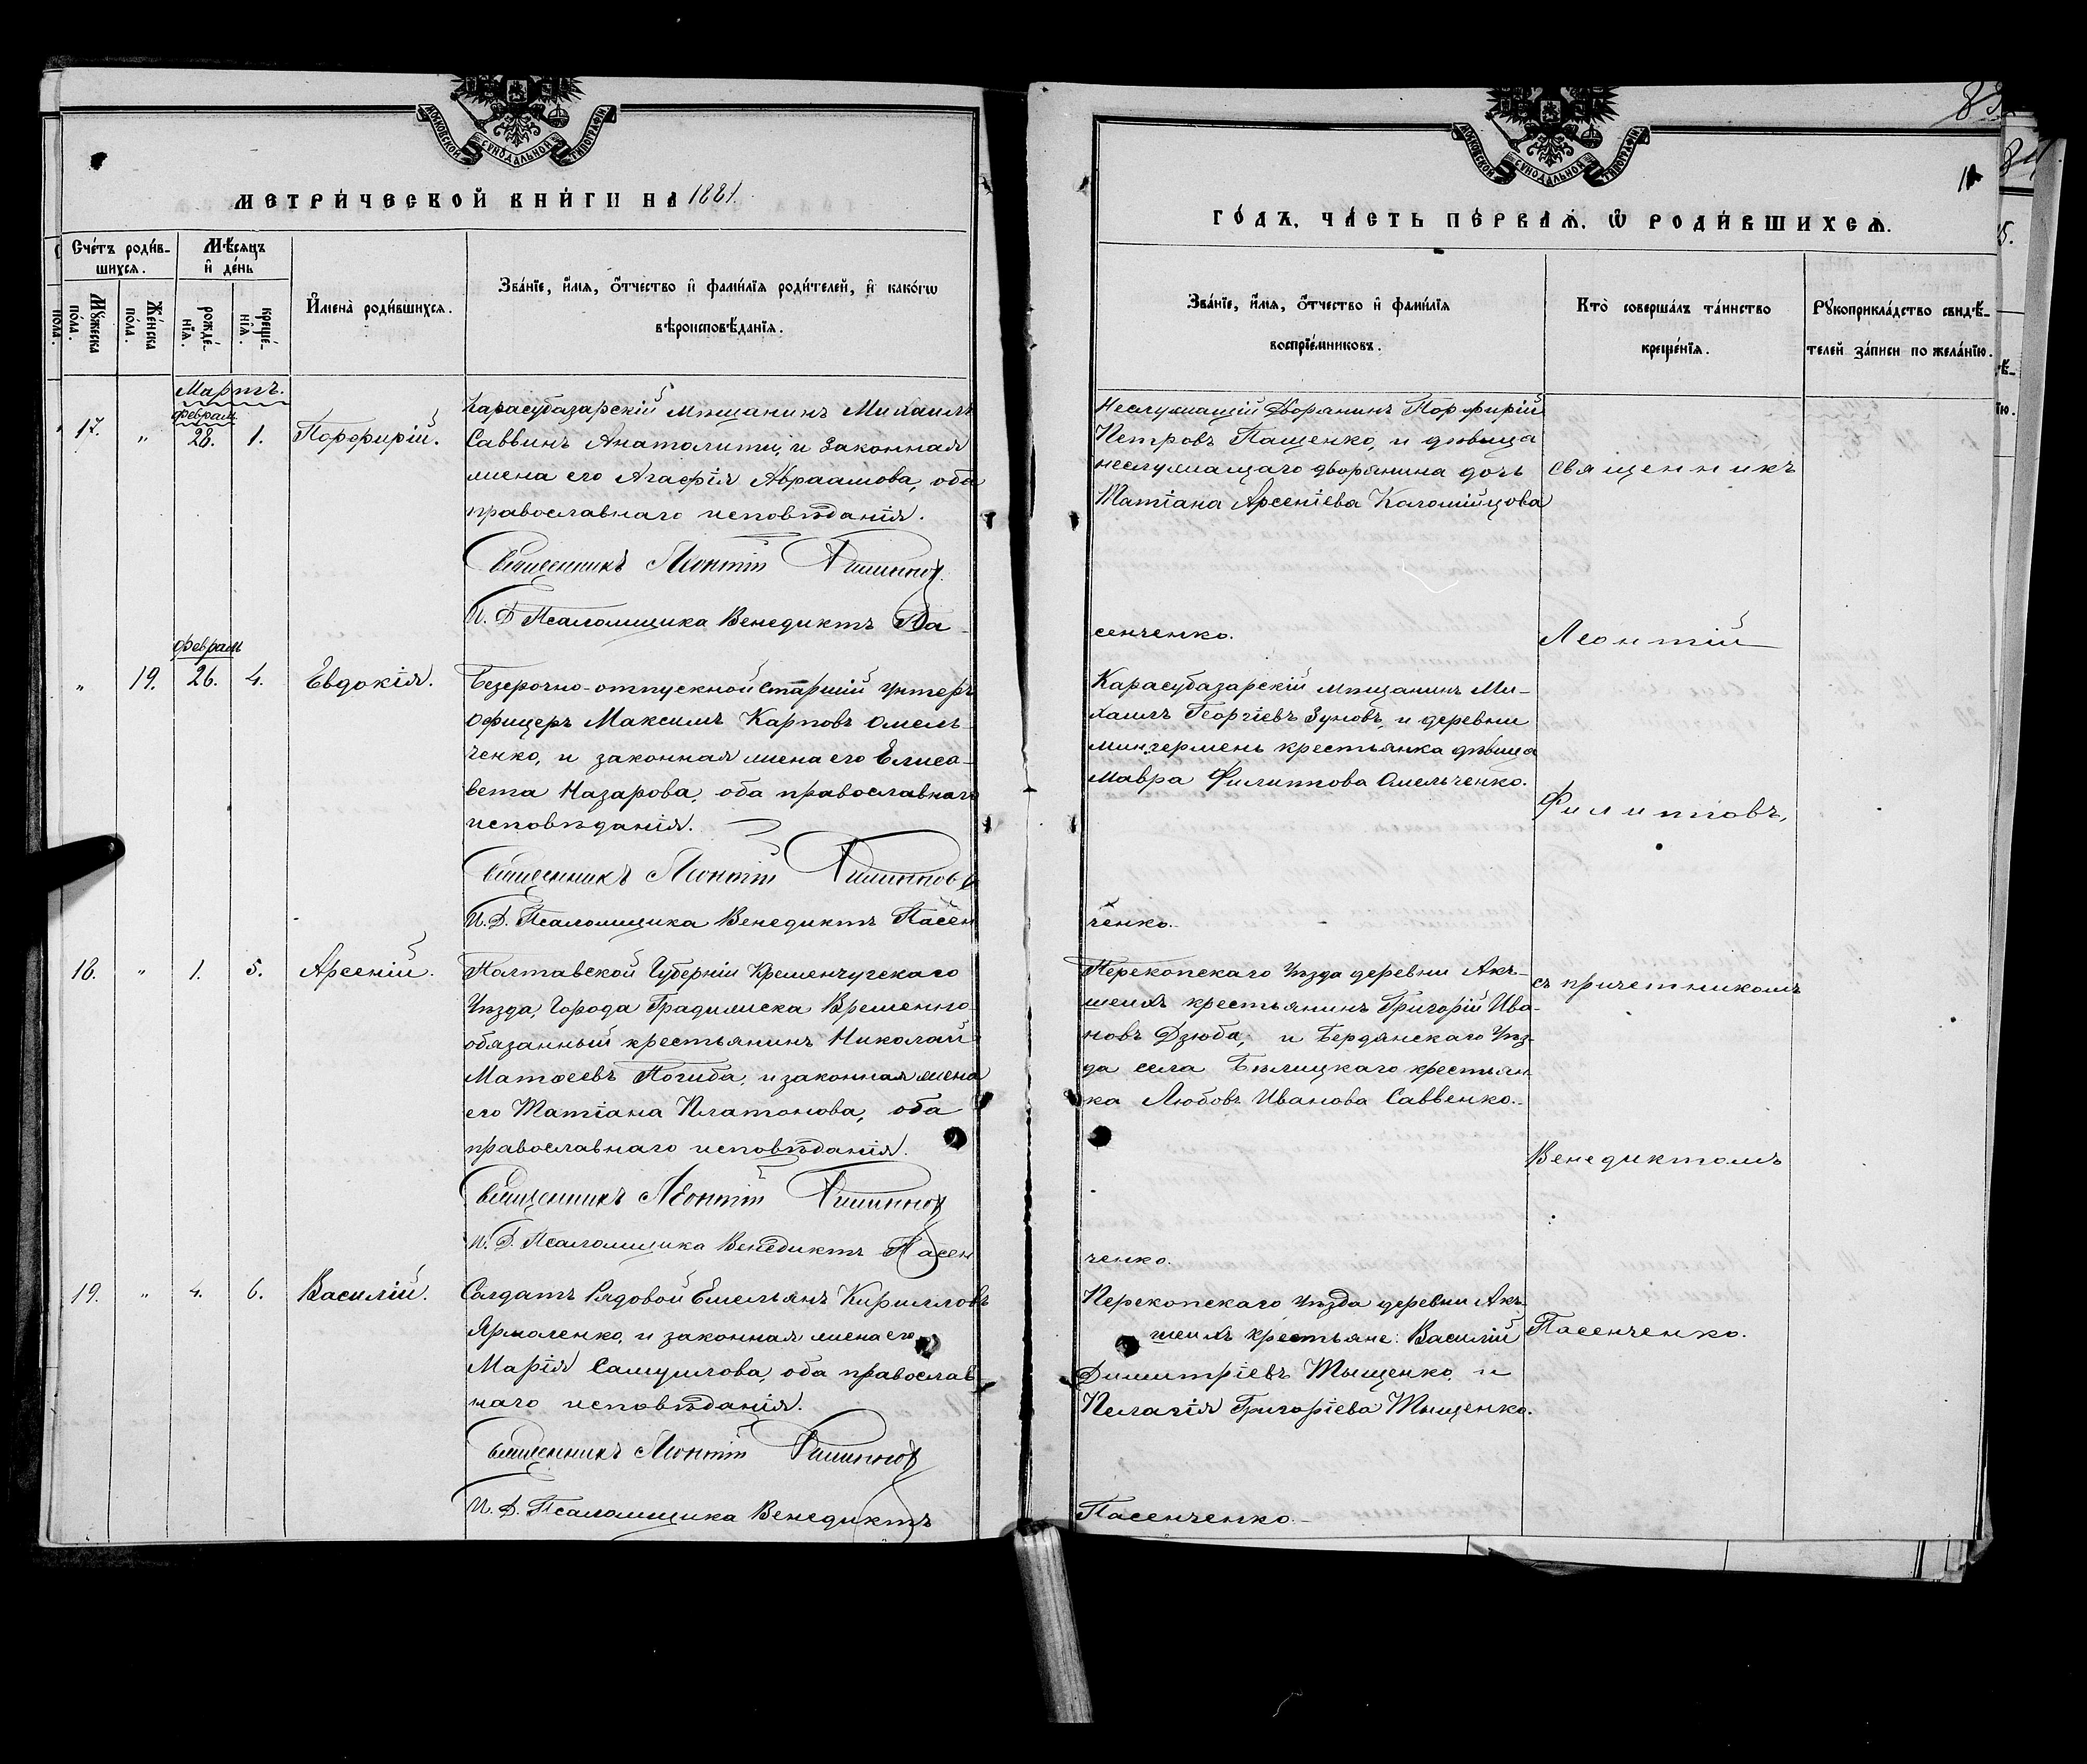 МОСКОВСКОЙ СУНОДАЛЬНОЙ ТИПОГРАФІИ
МЕТРИ́ЧЕСКОЙ КНИ́ГИ НА 1881.
Сче́тъ роди́в-
шихся.
Мѣ́сяцъ
и҆ де́нь
Мꙋ́жеска
по́ла.
Же́нска
по́ла.
рожде́-
нїя.
креще́-
нїя.
И҆мена̀ роди́вшихся.
Зва́нїе, и҆́мя, ѻ҆́тчество и҆ фами́лїя роди́телей, и҆ како́гѡ
вѣроисповѣ́данїя.
Мартъ.
Феврал
17. " 28. 1. Порфирій.
Карасубазарскій мѣщанинъ Михаилъ
Саввинъ Анатолити, и законная
жена его Агафія Авраамова, оба
православнаго исповѣданія.
Священникъ Леонтій Филиппов
И. Д. Псаломщика Венедиктъ Па-
Феврал
" 19. 26. 4. Евдокія.
Безсрочно-отпускной старшій унтеръ
офицеръ Максимъ Карповъ Омель-
ченко, и законная жена его Елиса-
вета Назарова, оба православнаго
исповѣданія.
Священникъ Леонтій Филиппов
И. Д. Псаломщика Венедиктъ Пасен
18. " 1. 5. Арсеній.
Полтавской Губерніи Кременчугскаго
Уѣзда, Города Градижска Временно-
обязанный крестьянинъ Николай
Матѳеевъ Погиба, и законная жена
его Татіана Платонова, оба
православнаго исповѣданія.
Священникъ Леонтій Филиппов
И. Д. Псаломщика Венедиктъ Пасен
19. " 4. 6. Василій.
Солдатъ Рядовой Емельянъ Кирилловъ
Ярмоленко, и законная жена его
Марія Самуилова, оба православ
наго исповѣданія.
Священникъ Леонтій Филиппов
И. Д. Псаломщика Венедиктъ
МОСКОВСКОЙ СУНОДАЛЬНОЙ ТИПОГРАФІИ
ГО́ДЪ, ЧА́СТЬ ПЕ́РВАЯ, Ѽ РОДИ́ВШИХСЯ.
Зва́нїе, и҆́мя, ѻ҆́тчество и҆ фами́лїя
воспрїе́мниковъ.
Кто̀ соверша́лъ та́инство
креще́нїя.
Рꙋкоприкла́дство свидѣ́-
телей за́писи по жела́нїю.
Неслужащій Дворянинъ Порфирій
Петровъ Пащенко, и дѣвица
неслужащаго дворянина дочь
Татіана Арсеніева Коломійцова
сенченко.
Карасубазарскій мѣщанинъ Ми-
хаилъ Георгіевъ Зуновъ, и деревни
Мингермень крестьянка дѣвица
Мавра Филиппова Омельченко.
ченко.
Перекопскаго Уѣзда деревни Акъ-
шеихъ крестьянинъ Григорій Ива-
новъ Дзюба, и Бердянскаго Уѣз-
да села Бѣлицкаго крестьян-
ка Любовь Иванова Саввенко.
ченко.
Перекопскаго Уѣзда деревни Акъ-
шеихъ крестьяне: Василій
Димитріевъ Тыщенко, и
Пелагія Григоріева Тыщенко.
Пасенченко.
Священникъ
Леонтій
Филипповъ,
съ причетникомъ
Венедиктомъ
Пасенченко.